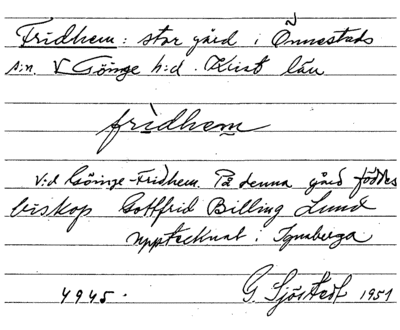 Fridhem: stor gård i Önnestads
s:n. V Göinge h:d. Krist län
fridhem
v:d Göinge-Fridhem. På denna gård föddes
biskop Gottfrid Billing Lund
upptecknat i Ignaberga
4945. G. Sjöstedt 1951